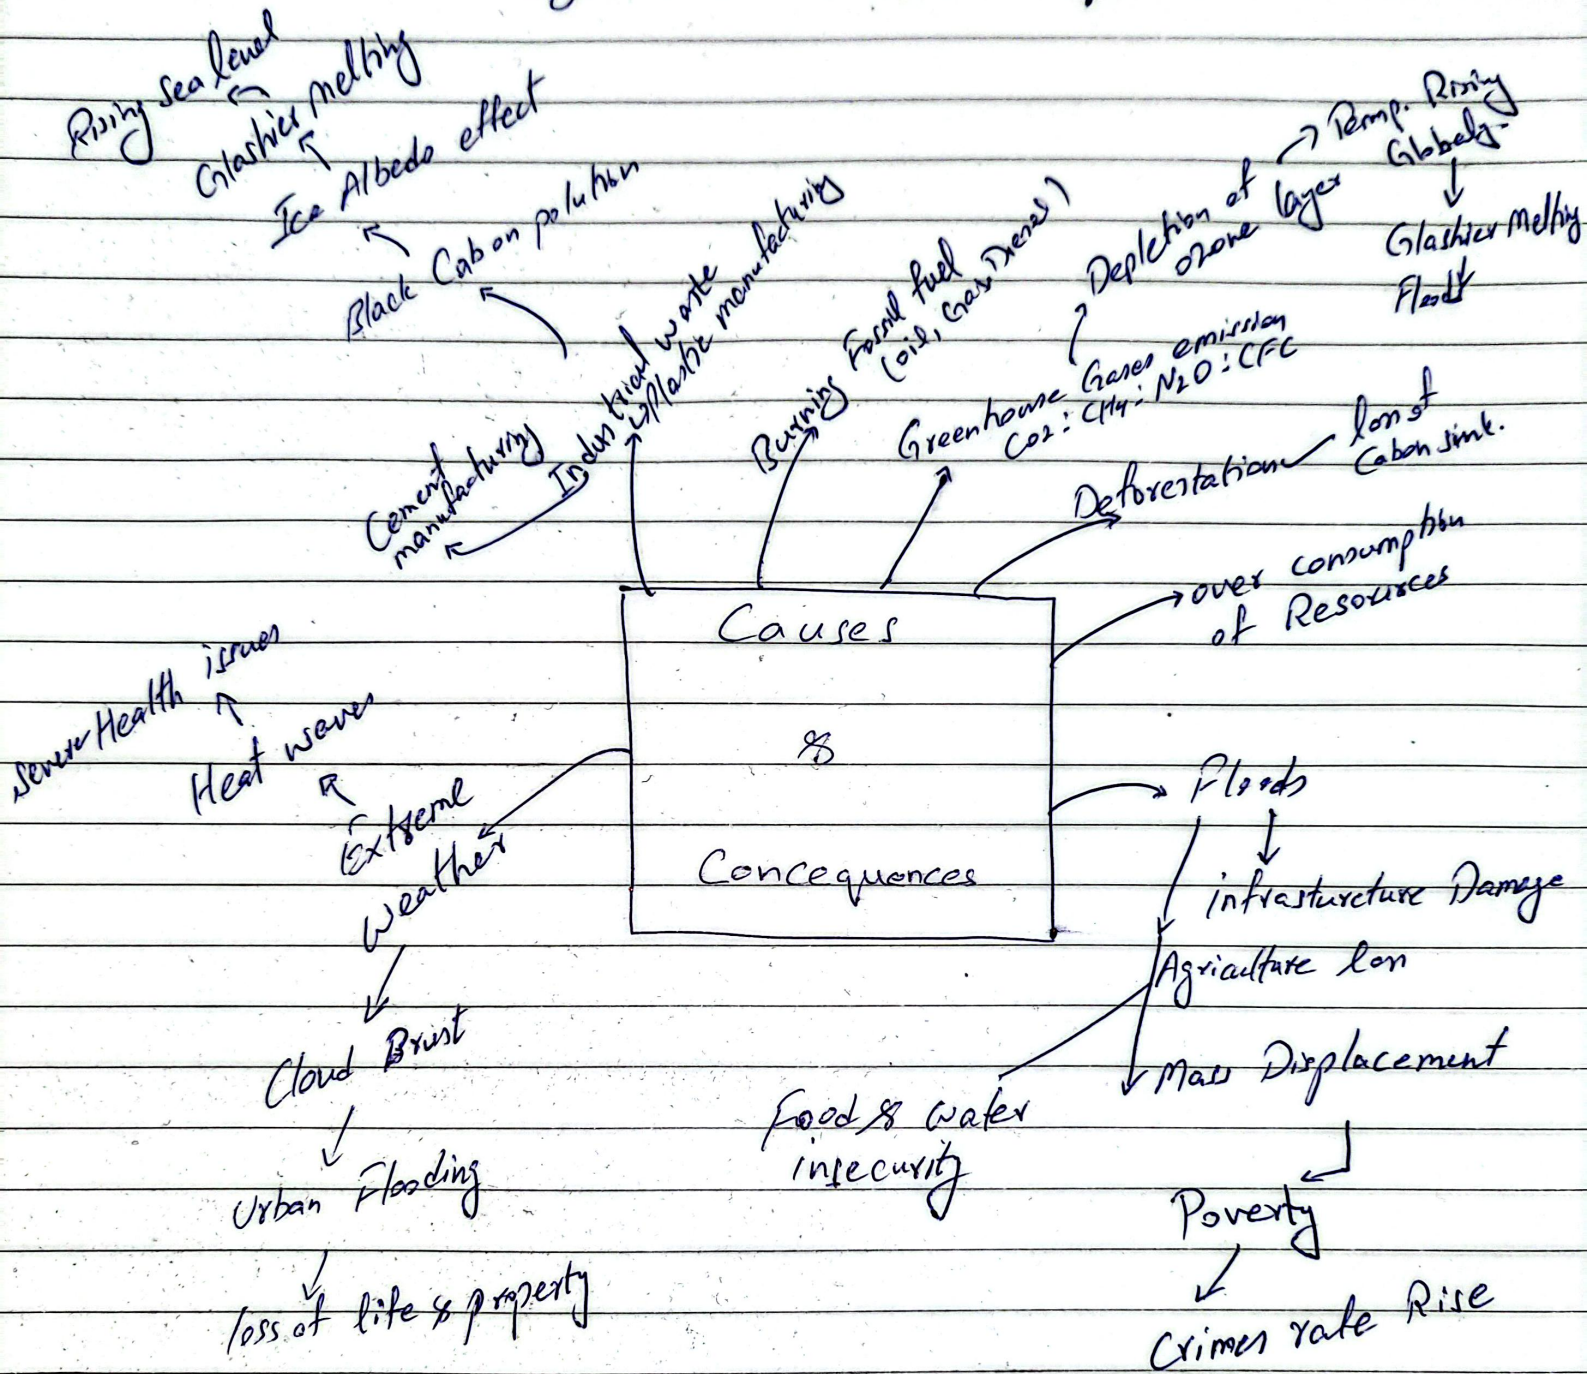 Rising sea level
Glashier Melting
Ice Albedo effect
Black Cabon polution
Industrial waste
Plastic manufacturing
Cement
manufacturing
Burning Fossil fuel
(oil, Gas, Diesel)
Greenhouse Gases emission
CO2: CH4: N2O: CFC
Depletion of
ozone layer
Temp. Rising
Globaly
Glashier Melting
Floods
Deforestation
loss of
Cabon sink.
over consumption
of Resources
Causes
&
Concequences
Severe Health issues
Heat waves
Extreme
weather
Cloud Brust
Urban Flooding
loss of life & property
Floods
infrasturcture Damage
Agriculture loss
Mass Displacement
Food & water
insecurity
Poverty
Crimes rate Rise